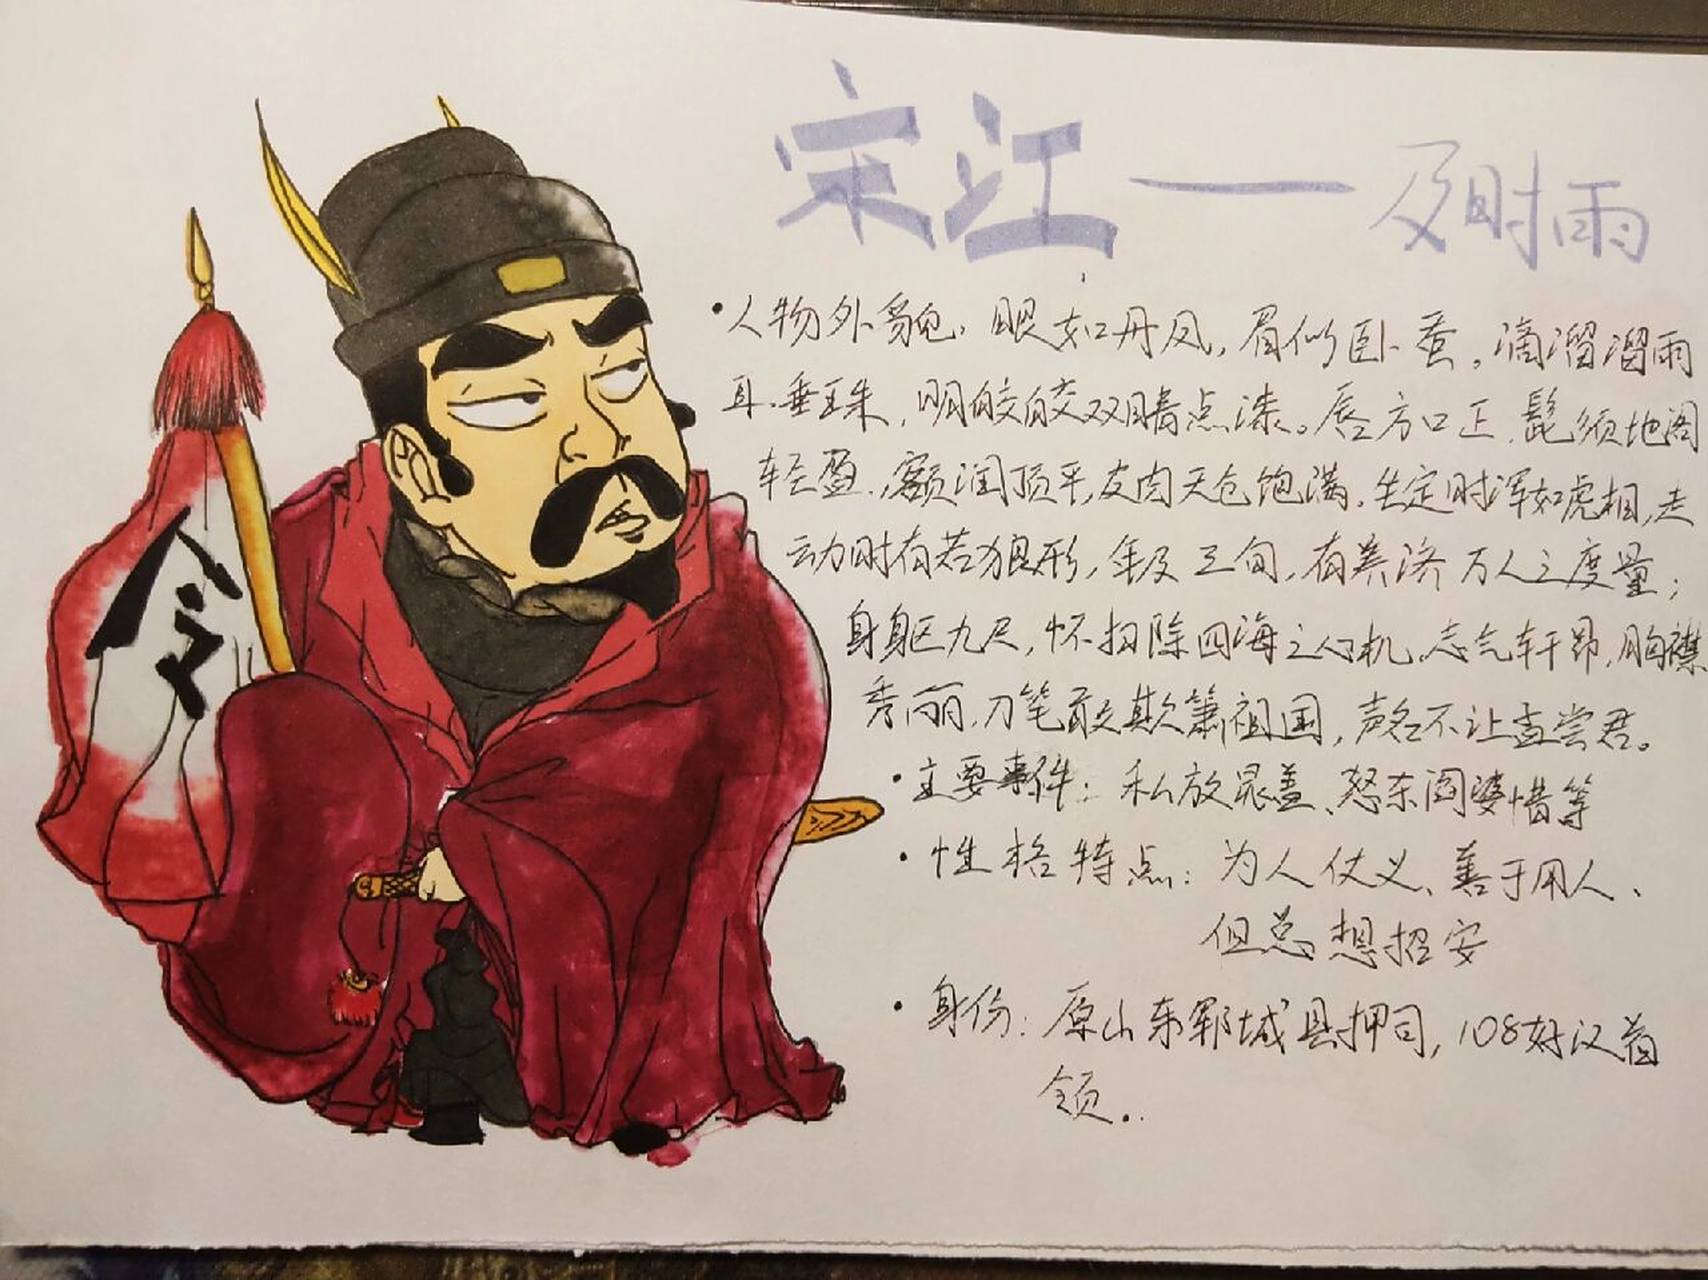 宋江——及时雨
令
·人物外貌:眼如丹凤,眉似卧蚕。滴溜溜雨
耳垂珠,明皎皎双睛点漆。唇方口正,髭须地阁
轻盈.额润顶平,皮肉天仓饱满.坐定时浑如虎相,走
动时有若狼形,年及三旬,有养济万人之度量;
身躯九尺,怀扫除四海之心机.志气轩昂,胸襟
秀丽.刀笔敢欺箫祖国,声名不让孟尝君。
·主要事件:私放晁盖、怒杀阎婆惜等
·性格特点:为人仗义、善于用人、
但总想招安
·身份:原山东郓城县押司,108好汉首
领。